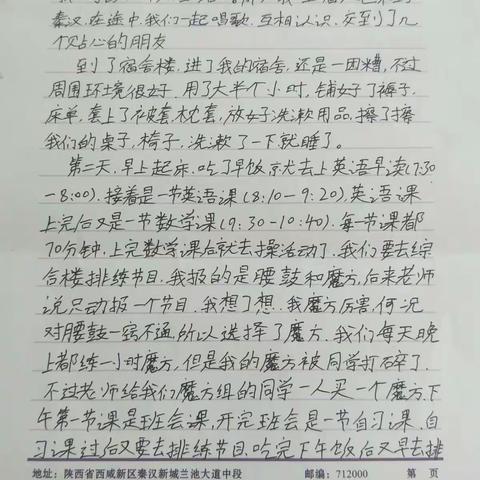 秦汉.在途中.我们一起唱歌.互相认识.交到了几
个知心的朋友
到了宿舍楼.进了我的宿舍.还是一团糟.不过
周围环境很好.用了大半个小时.铺好了褥子.
床单.套上了被套.枕套.放好洗漱用品.擦了擦
我们的桌子.椅子.洗漱了一下就睡了。
第二天.早上起床.吃了早饭就去上英语早读(7:30
-8:00).接着是一节英语课(8:10-9:20),英语课
上完后又是一节数学课(9:30-10:40).每一节课都
70分钟.上完数学课后就去操活动了.我们要去综
合楼排练节目.我报的是腰鼓和魔方.后来老师
说只动报一个节目.我想了想.我魔方厉害.何况
对腰鼓一窍不通.所以选择了魔方.我们每天晚
上都练一小时魔方.但是我的魔方被同学打碎了.
不过老师给我们魔方组的同学一人买一个魔方.下
午第一节课是班会课.开完班会是一节自习课.自
习课过后又要去排练节目.吃完下午饭后又早去排
地址：陕西省西咸新区秦汉新城兰池大道中段 邮编：712000 第 页